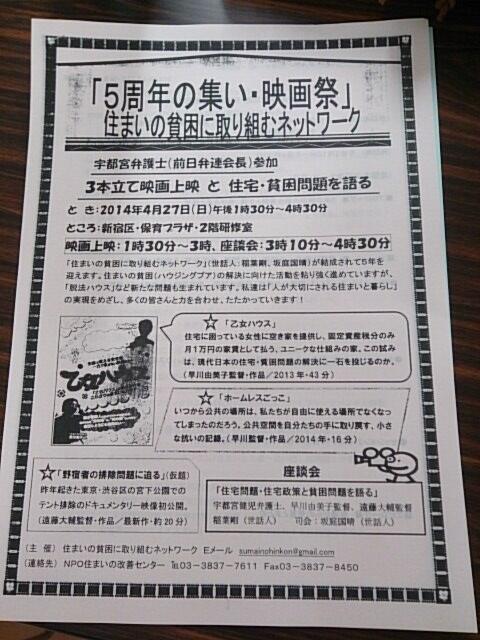 「5周年の集い・映画祭」
住まいの貧困に取り組むネットワーク
宇都宮弁護士(前日弁連会長)参加
3本立て映画上映 と 住宅・貧困問題を語る
と き:2014年4月27日(日)午後1時30分～4時30分
ところ:新宿区・保育プラザ・2階研修室
映画上映:1時30分～3時、座談会:3時10分～4時30分
「住まいの貧困に取り組むネットワーク」(世話人:稲葉剛、坂庭国晴)が結成されて5年を
迎えます。住まいの貧困(ハウジングプア)の解決に向けた活動を粘り強く進めていますが、
「脱法ハウス」など新たな問題も生まれています。私達は「人が大切にされる住まいと暮らし」
の実現をめざし、多くの皆さんと力を合わせ、たたかっていきます!
乙女ハウス
☆「乙女ハウス」
住宅に困っている女性に空き家を提供し、固定資産税分のみ
月1万円の家賃として払う、ユニークな仕組みの家。この試み
は、現代日本の住宅・貧困問題の解決に一石を投じるのか。
(早川由美子監督・作品/2013年・43分)
☆「ホームレスごっこ」
いつから公共の場所は、私たちが自由に使える場所でなくなっ
てしまったのだろう。公共空間を自分たちの手に取り戻す、小さ
な抗いの記録。(早川監督・作品/2014年・16分)
☆「野宿者の排除問題に迫る」(仮題)
昨年起きた東京・渋谷区の宮下公園での
テント排除のドキュメンタリー映像初公開。
(遠藤大輔監督・作品/最新作・約20分)
座談会
「住宅問題・住宅政策と貧困問題を語る」
宇都宮健児弁護士、早川由美子監督、遠藤大輔監督
稲葉剛(世話人) 司会:坂庭国晴(世話人)
(主 催) 住まいの貧困に取り組むネットワーク Eメール sumainohinkon@gmail.com
(連絡先) NPO住まいの改善センター ℡03-3837-7611 Fax03-3837-8450